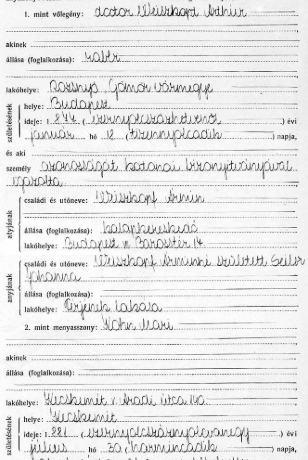 1. mint vőlegény: doctor Weiszkopf Arthur
akinek
állása (foglalkozása): rabbi
lakóhelye: Rozsnyó Gömör vármegye
születésének
helye: Budapest
ideje: 1 877 (ezernyolcszázhetven ) évi
január hó 18 (tizennyolcadik ) napja,
és aki
személy azonosságát katonai bizonyítványával
igazolta
atyjának
családi és utóneve: Weiszkopf Ármin
állása (foglalkozása): kalapkereskedő
lakóhelye: Budapest
anyjának
családi és utóneve: Weiszkopf Árminné született
Johanna
állása (foglalkozása):
lakóhelye: Férjének lakása
2. mint menyasszony: Kohn Mari
akinek
állása (foglalkozása):
lakóhelye: Kecskemét Aradi utca
születésének
helye: Kecskemét
ideje: 1 881 (ezernyolcszáznyolcvanegy ) évi
július hó 30 (harmincadik ) napja,